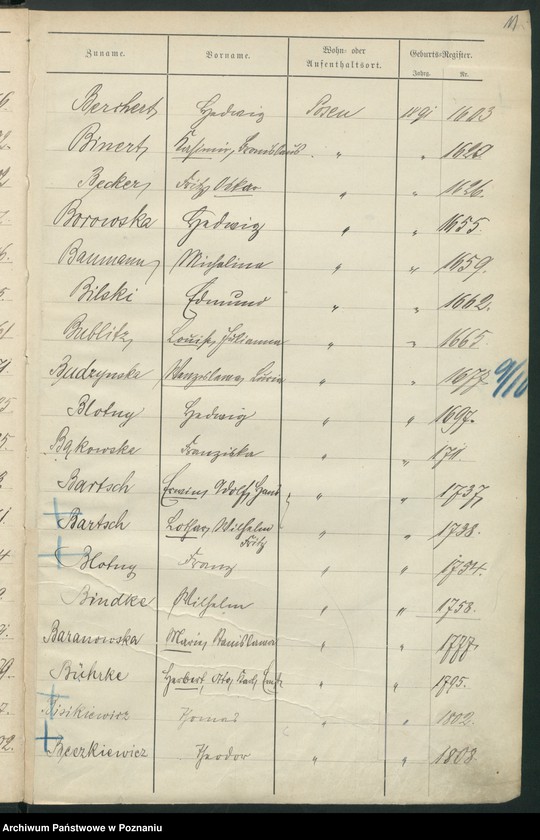 11
Zuname. Vorname. Wohn- oder Aufenthaltsort. Geburts-Register.
Jahrg. Nr.
Berchert, Hedwig Posen 1891 1603
Binert, Kasimir, Stanislaus " " 1622
Becker, Fritz Oskar " " 1626.
Borowska Hedwig " " 1655.
Baumann, Michalina " " 1659.
Bilski Edmund " " 1662.
Bublitz, Louise, Julianna " " 1665.
Budzynska Wenzeslawa, Lucia " " 1677 9/10
Blotny Hedwig " " 1697.
Bąkowska Franziska " " 1711
Bartsch Erwin, Adolf, Hans " " 1737,
Bartsch Lothar, Wilhelm Fritz " " 1738.
Blotny Franz " " 1754.
Bindke Wilhelm " " 1758.
Baranowska Marie, Stanislawa " " 1777.
Bührke Herbert, Otto, Karl, Emil " " 1795.
Thomas " " 1802.
Beszkiewicz Theodor " " 1808.
Archiwum Państwowe w Poznaniu